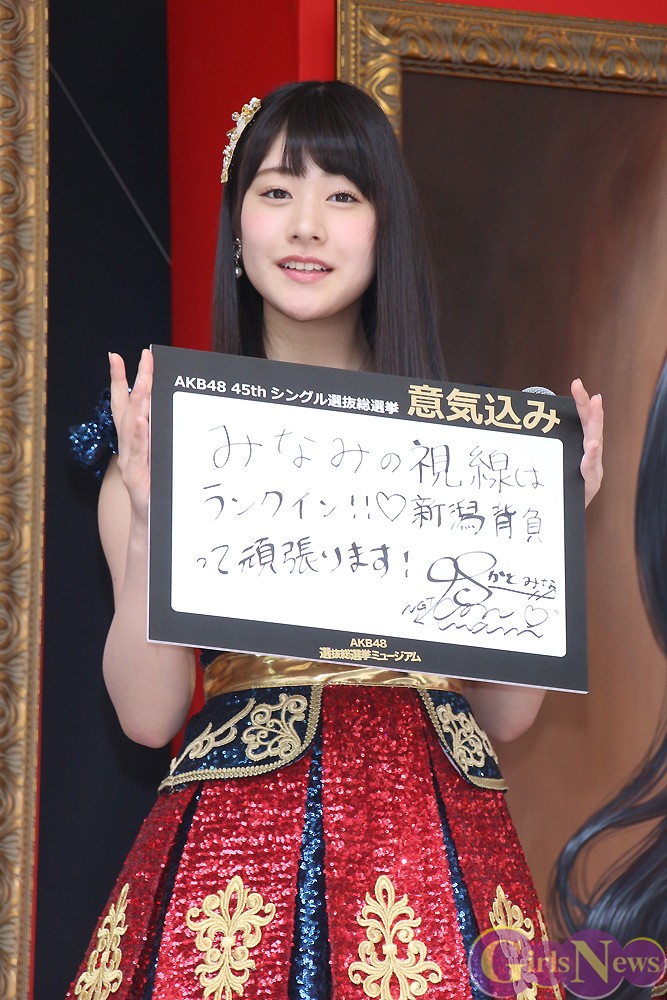 AKB48 45th シングル選抜総選挙 意気込み
みなみの視線は
ランクイン!!♡新潟背負
って頑張ります!
かとみな
NGT
AKB48
選抜総選挙ミュージアム
GirlsNews